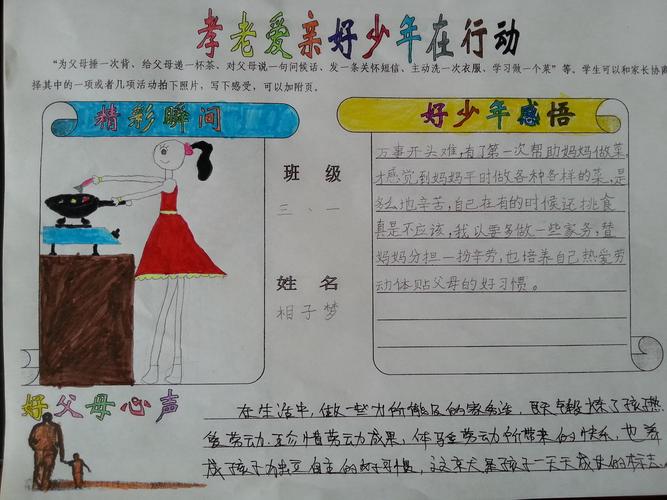 孝老爱亲好少年在行动
“为父母捶一次背、给父母递一杯茶、对父母说一句问候话、发一条关怀短信、主动洗一次衣服、学习做一个菜”等。学生可以和家长协商
择其中的一项或者几项活动拍下照片，写下感受，可以加附页。
精彩瞬间
班级
三、一
姓名
相子梦
好少年感悟
万事开头难，有了第一次帮助妈妈做菜，
才感觉到妈妈平时做各种各样的菜，是
多么地辛苦，自己在有的时候还挑食
真是不应该，我以要多做一些家务，替
妈妈分担一扮辛劳，也培养自己热爱劳
动体贴父母的好习惯。
好父母心声
在生活中，做一些力所能及的家务活，既锻炼了孩子热
爱劳动、珍惜劳动成果，体验劳动所带来的快乐，也养
成孩子独立自主的好习惯，这来是孩子一天天成长的标志。